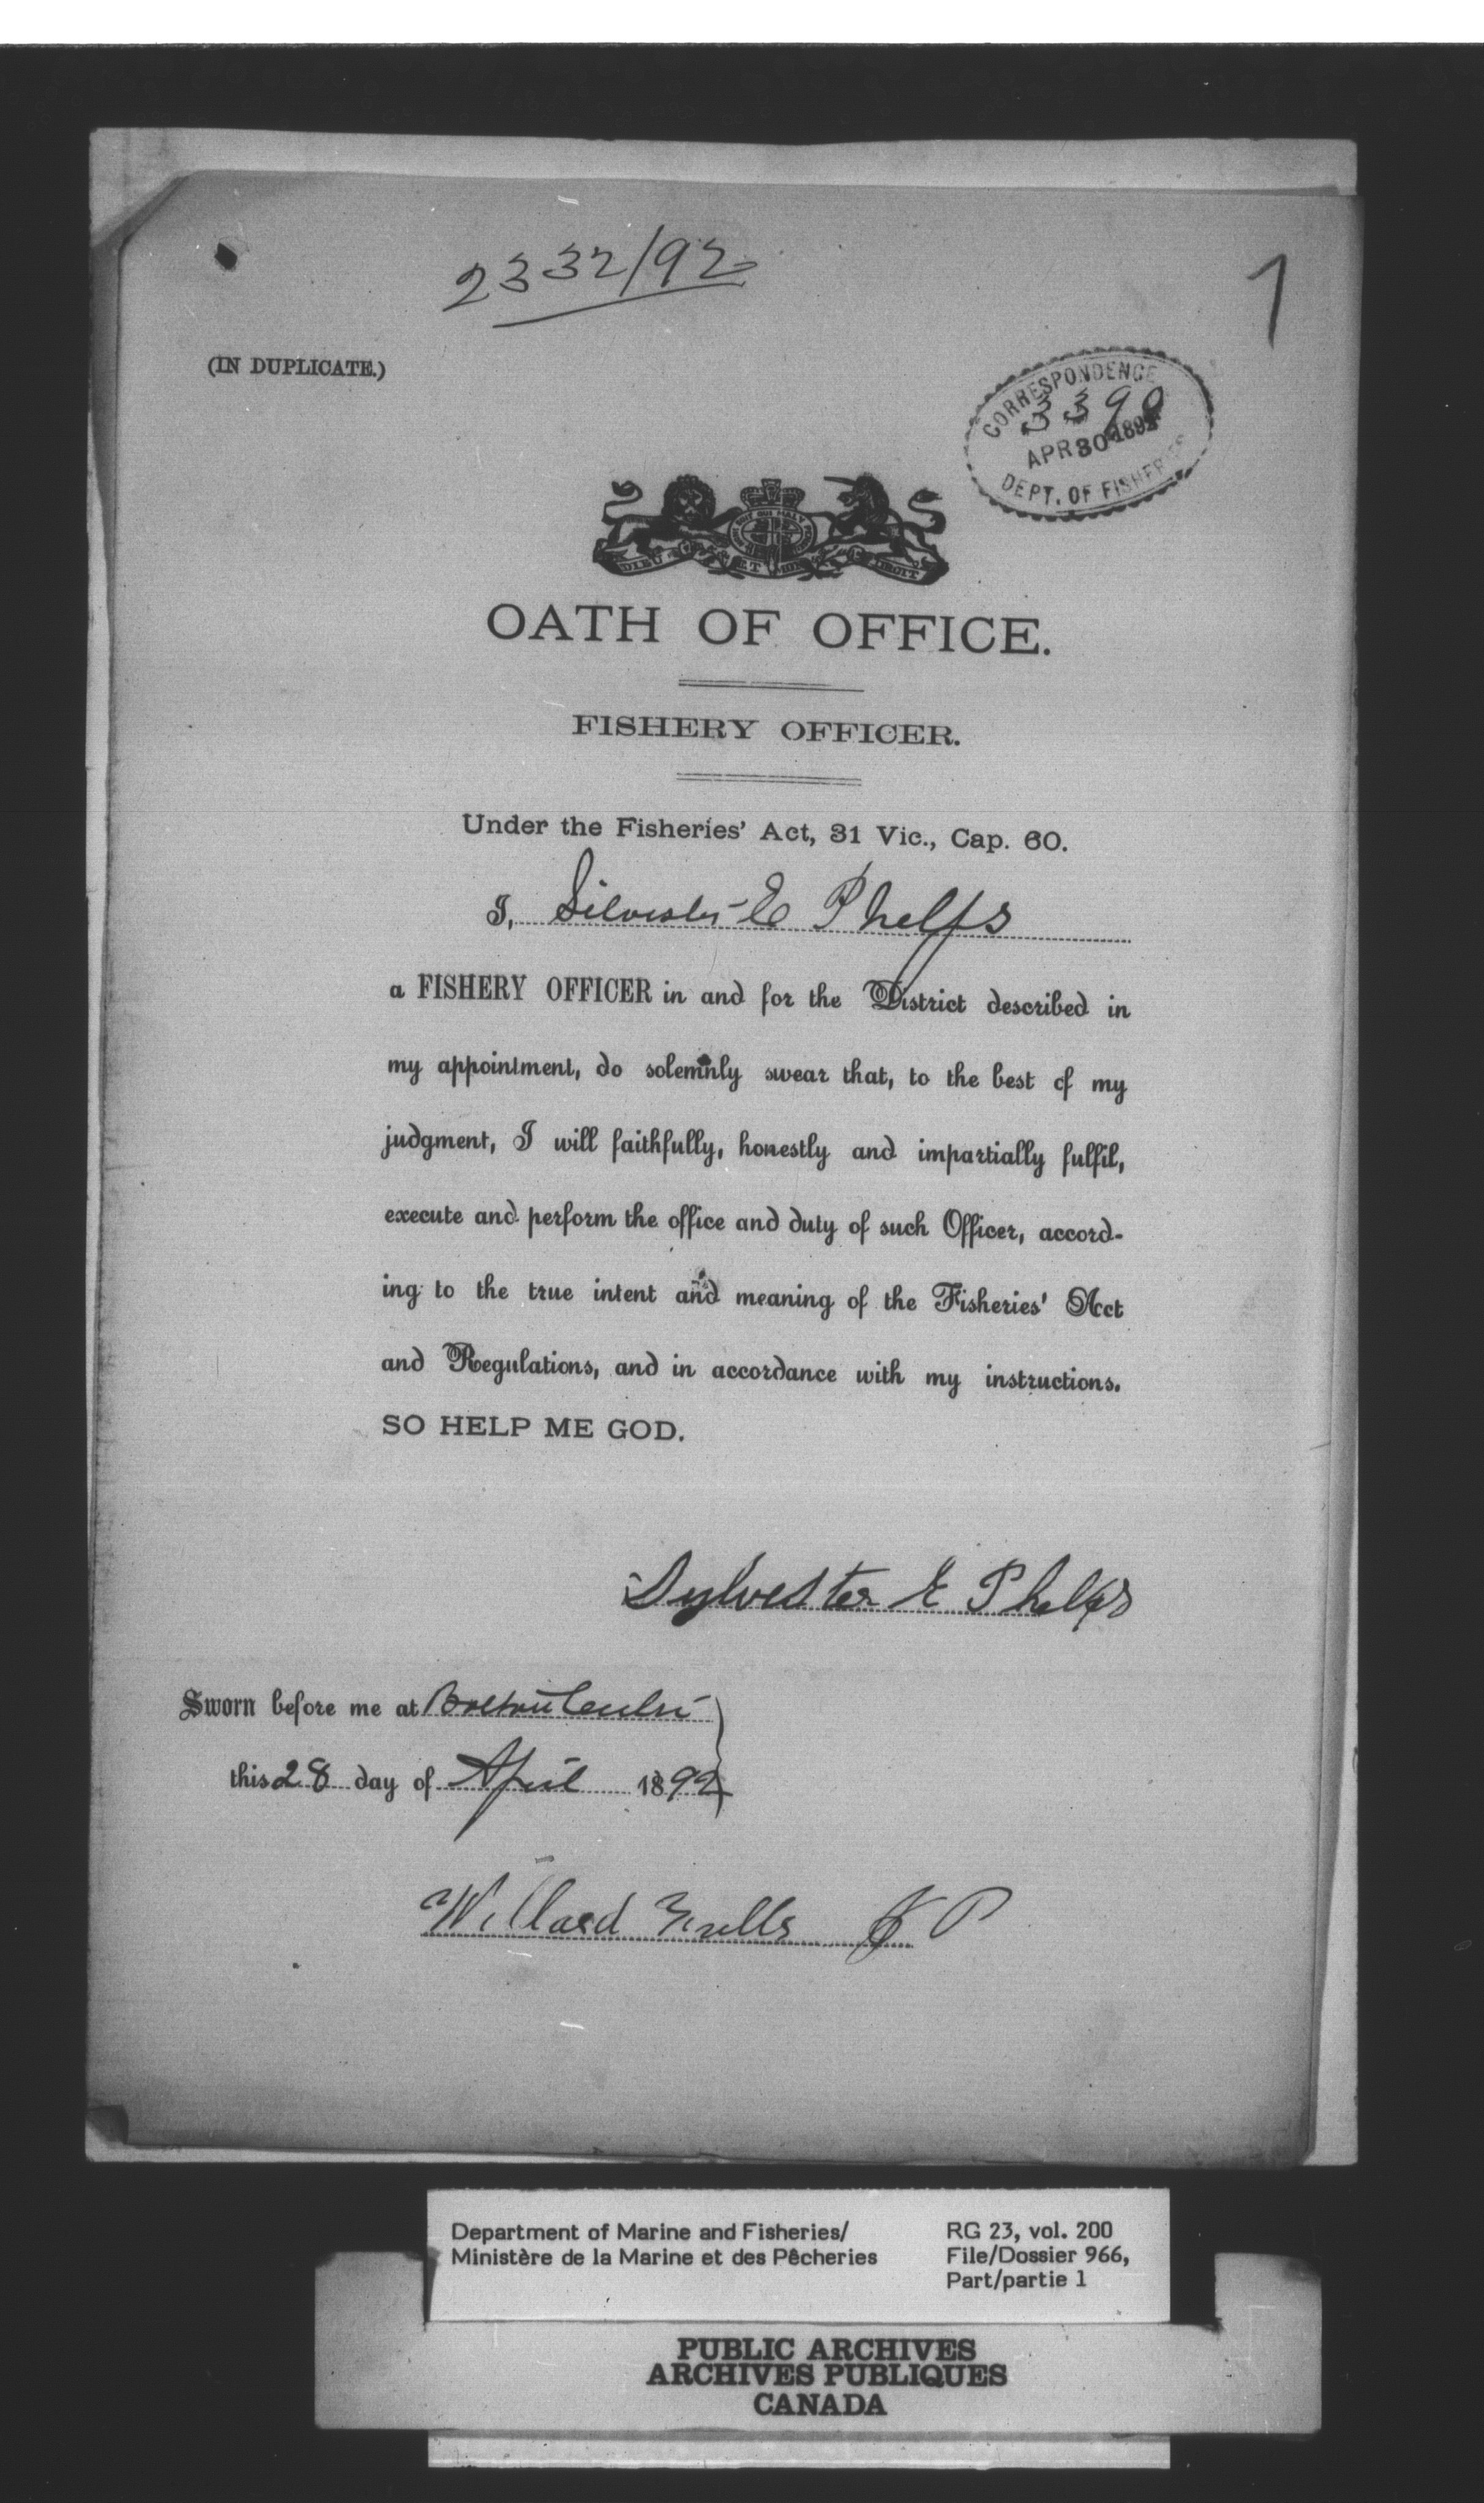 2332/92
1
(IN DUPLICATE.)
CORRESPONDENCE
3390
APR 30 1892
DEPT. OF FISHERIES
HONI SOIT QUI MAL Y PENSE
DIEU ET MON DROIT
OATH OF OFFICE.
FISHERY OFFICER.
Under the Fisheries' Act, 31 Vic., Cap. 60.
I, Silvester E Phelps
a FISHERY OFFICER in and for the District described in
my appointment, do solemnly swear that, to the best of my
judgment, I will faithfully, honestly and impartially fulfil,
execute and perform the office and duty of such Officer, accord-
ing to the true intent and meaning of the Fisheries' Act
and Regulations, and in accordance with my instructions.
SO HELP ME GOD.
Sylvester E Phelps
Sworn before me at Bolton Centre
this 28 day of April 1892
Willard J P
Department of Marine and Fisheries/
Ministère de la Marine et des Pêcheries
RG 23, vol. 200
File/Dossier 966,
Part/partie 1
PUBLIC ARCHIVES
ARCHIVES PUBLIQUES
CANADA